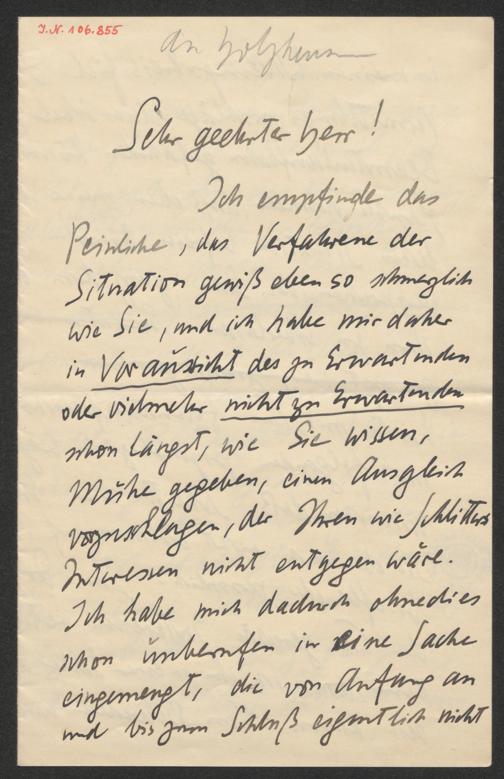 J.N. 106.855
An Holzhausen
Sehr geehrter Herr!
Ich empfinde das
Peinliche, das Verfahrene der
Situation gewiß eben so schmerzlich
wie Sie, und ich habe mir daher
in Voraussicht des zu Erwartenden
oder vielmehr nicht zu Erwartenden
schon längst, wie Sie wissen,
Mühe gegeben, einen Ausgleich
vorzuschlagen, der Ihren wie Schlitters
Interessen nicht entgegen wäre.
Ich habe mich dadurch ohnedies
schon unberufen in eine Sache
eingemengt, die von Anfang an
und bis zum Schluß eigentlich nicht